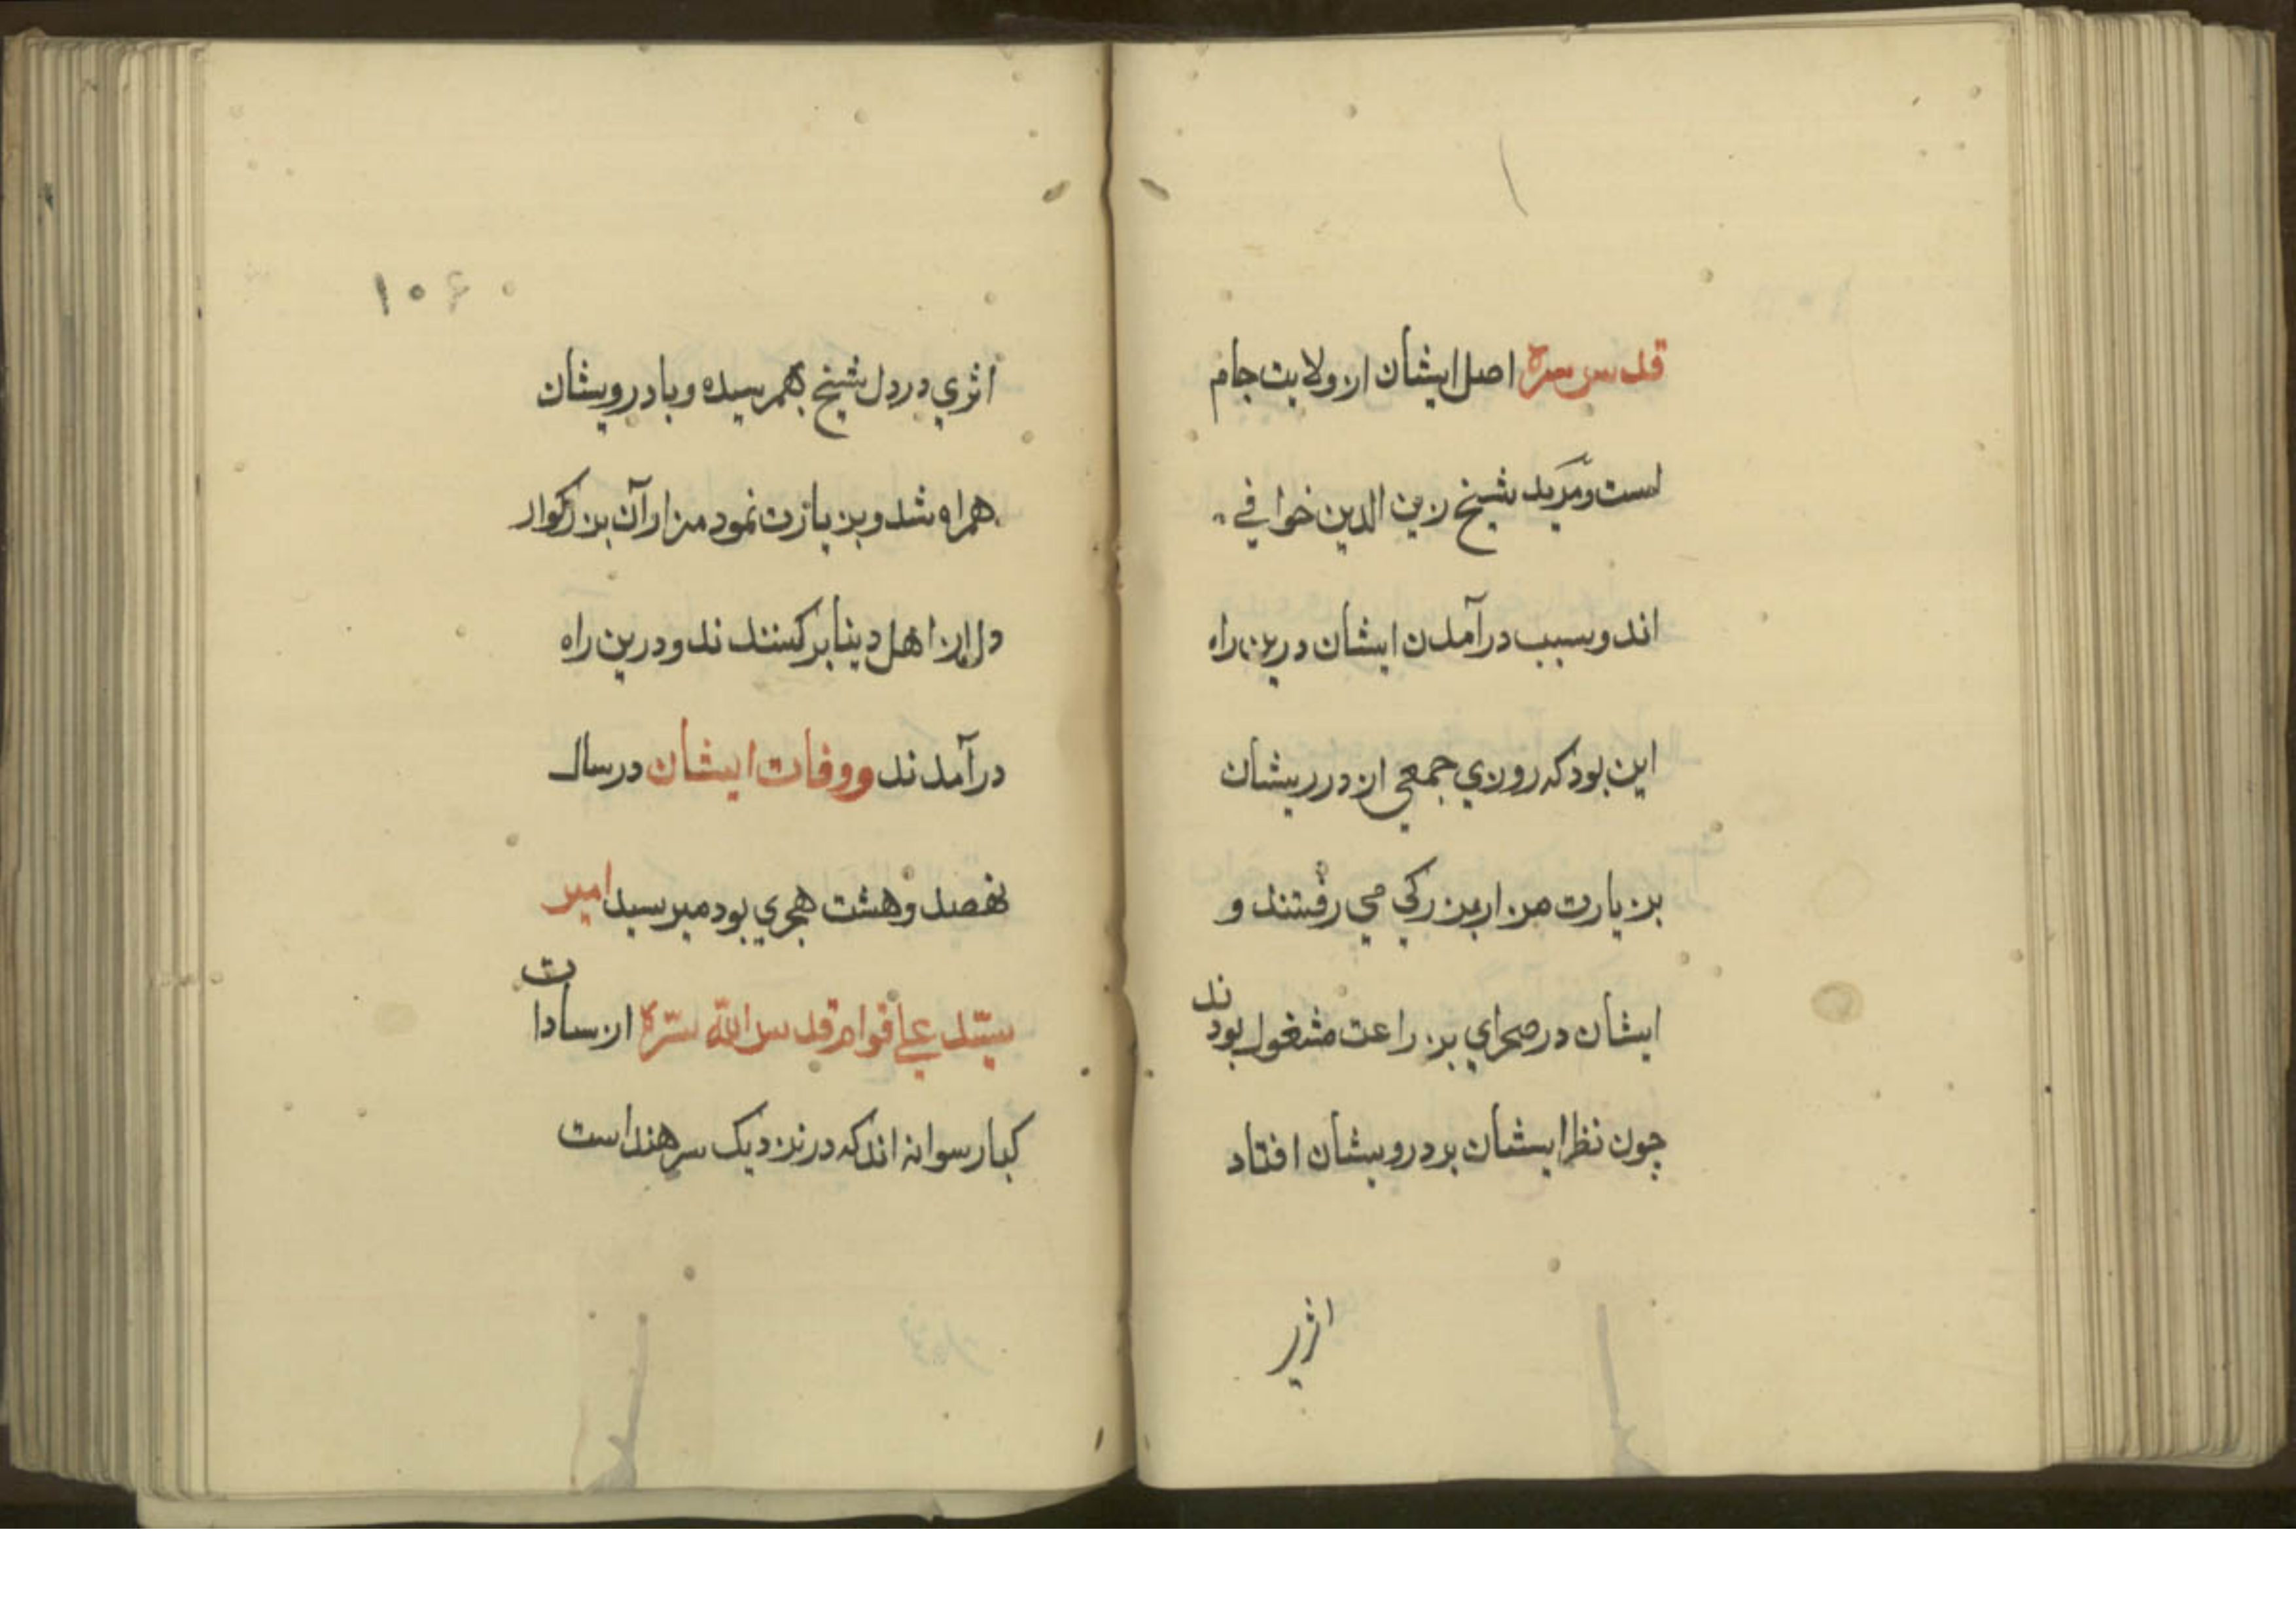 قدس سره اصل ایشان از ولایت جام
است و مرید شیخ زین الدین خوافي
اند و سبب درآمدن ایشان درین راه
این بود که روزي جمعي از درریشان
بزیارت مزار بزرکي مي رفتند و
ایشان در صحراي بزراعت مشغول بودند
چون نظر ایشان بر درویشان افتاد
اثري
۱۰۶
اثري در دل شیخ بهمرسیده و با درویشان
همراه شد و بزیازت نمود مزار آن بزرکوار
دل از اهل دینا برکنند ند و درین راه
درآمدند و وفات ایشان در سال
نهصد و هشت هجري بود میر سید امیر
سیّد علي قوام قدس اللّه سرّه از سادات
کبار سوانه اند که در نزدیک سرهند است